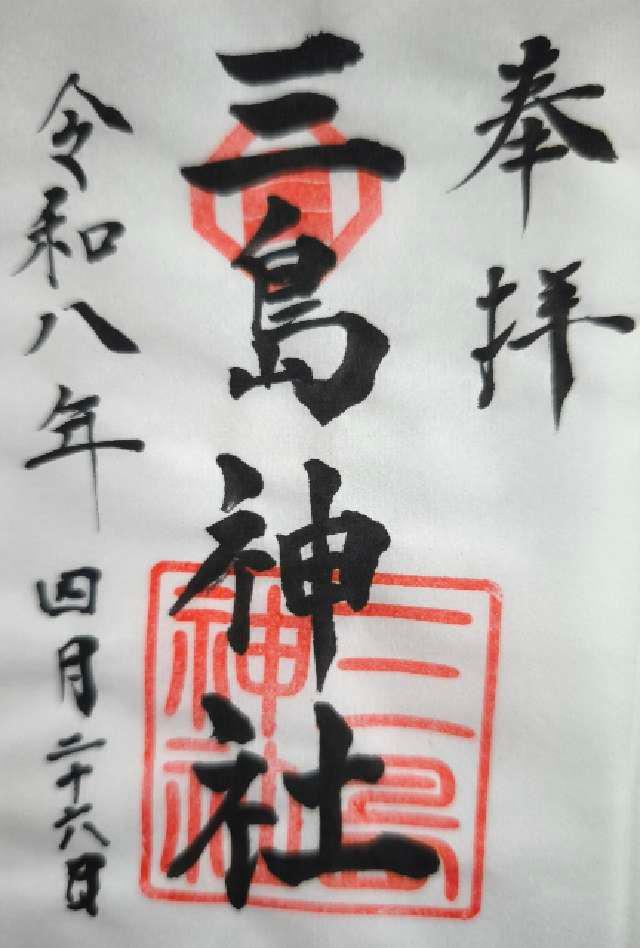 奉拝
三島神社
令和八年四月二十六日
三島神社